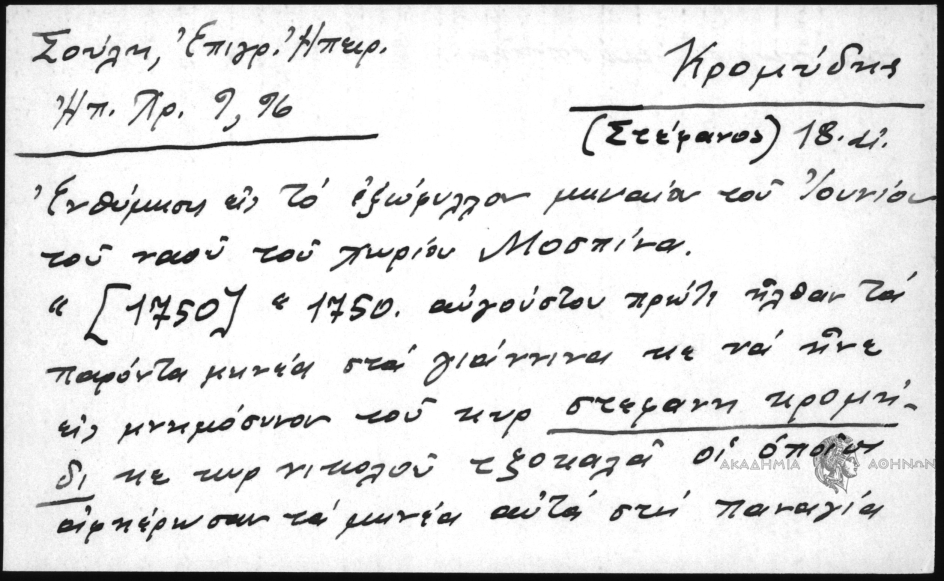 Σούλη, Ἐπιγρ. Ἠπειρ.
Ἠπ. Χρ. 9, 96
Κρομύδης
(Στέφανος) 18. αἰ.
Ἐνθύμησις εἰς τό ἐξώφυλλον μηναίου τοῦ Ἰουνίου
τοῦ ναοῦ τοῦ χωρίου Μοσπίνα.
“ [1750] “ 1750. αὐγούστου πρώτι ἦλθαν τά
παρόντα μηνέα στά γιάννινα κε νά ἦνε
εἰς μνημόσυνον τοῦ κυρ στεφανη κρομή-
δι κε κυρ νικολοῦ τξοκαλᾶ οἱ ὁποῖοι
ἀφηέρωσαν τά μηνέα αὐτά στή παναγία
ΑΚΑΔΗΜΙΑ ΑΘΗΝΩΝ